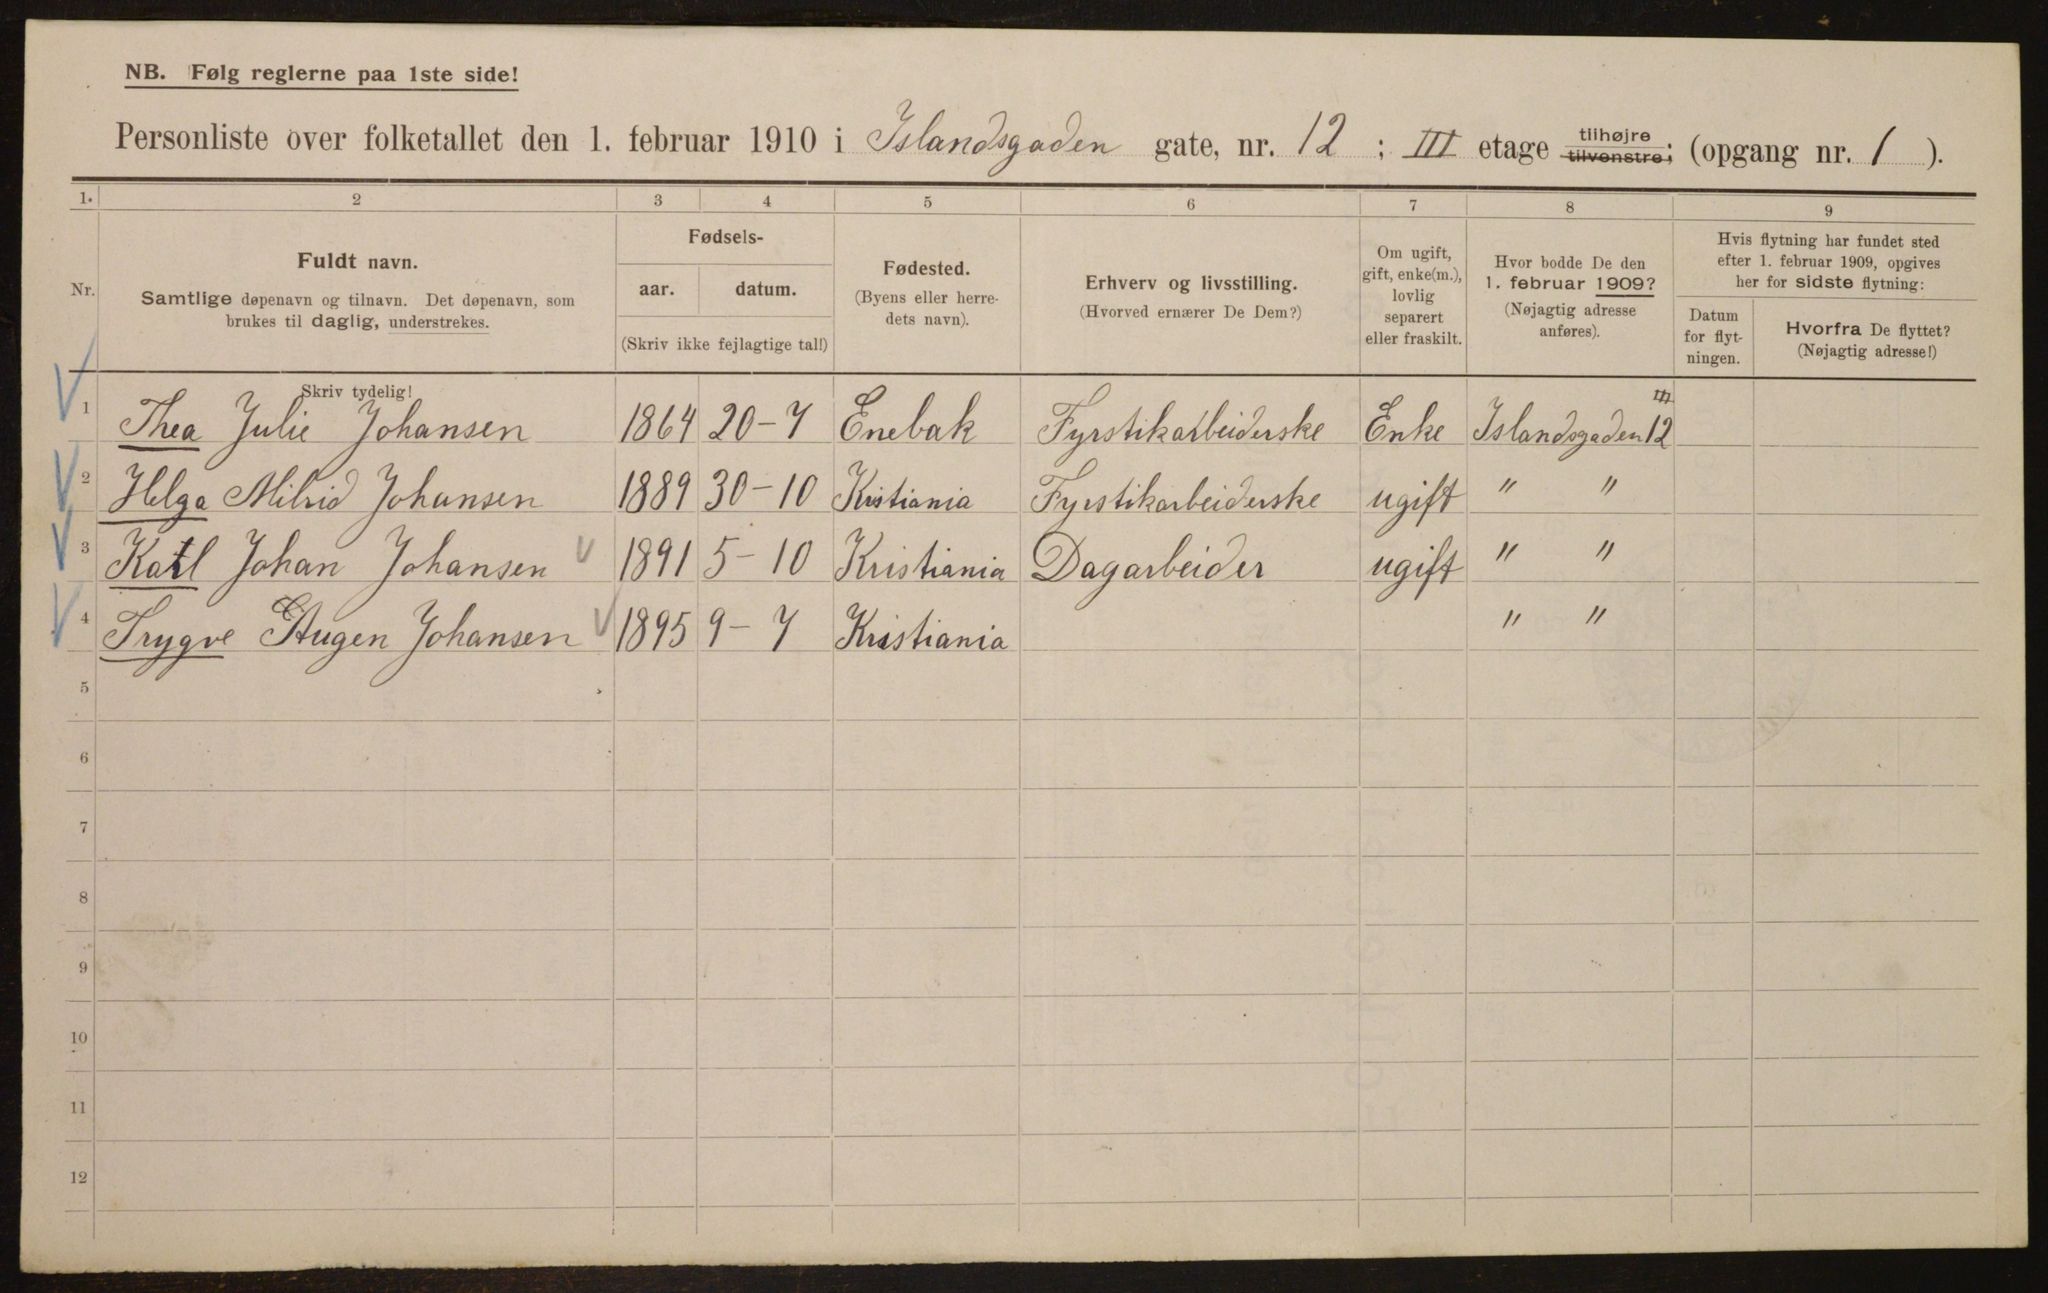 NB. Følg reglerne paa 1ste side!
Personliste over folketallet den 1. februar 1910 i Islandsgaden gate, nr. 12 ; III etage tilhøjre tilvenstre; (opgang nr. 1 ).
1. 2 3 4 5 6 7 8 9
Nr.
Fuldt navn.
Samtlige døpenavn og tilnavn. Det døpenavn, som
brukes til daglig, understrekes.
Fødsels-
aar. datum.
(Skriv ikke fejlagtige tal!)
Fødested.
(Byens eller herre-
dets navn).
Erhverv og livsstilling.
(Hvorved ernærer De Dem?)
Om ugift,
gift, enke(m.),
lovlig
separert
eller fraskilt.
Hvor bodde De den
1. februar 1909?
(Nøjagtig adresse
anføres).
Hvis flytning har fundet sted
efter 1. februar 1909, opgives
her for sidste flytning:
Datum
for flyt-
ningen.
Hvorfra De flyttet?
(Nøjagtig adresse!)
Skriv tydelig!
1 Thea Julie Johansen 1864 20-7 Enebak Fyrstikarbeiderske Enke Islandsgaden 12 III
2 Helga Milrid Johansen 1889 30-10 Kristiania Fyrstikarbeiderske ugift " "
3 Karl Johan Johansen 1891 5-10 Kristiania Dagarbeider ugift " "
4 Trygve Johansen 1895 9-7 Kristiania " "
5
6
7
8
9
10
11
12